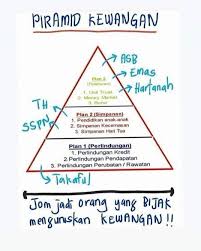 PIRAMID KEWANGAN
ASB
Emas
Hartanah
Plan 3
1. Unit Trust
2. Money Market
TH
SSPN
Plan 2 (Simpanan)
1. Pendidikan anak-anak
2. Simpanan Kecemasan
3. Simpanan Hari Tua
Plan 1 (Perlindungan)
1. Perlindungan Kredit
2. Perlindungan Pendapatan
3. Perlindungan Perubatan / Rawatan
Takaful
Jom jadi orang yang BIJAK
menguruskan KEWANGAN!!